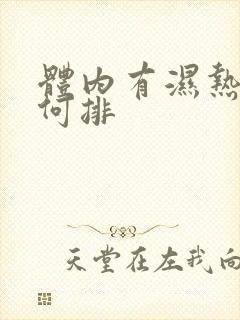 體内有濕熱
何排
天堂在左我向